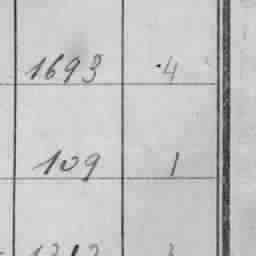 1693 4
109 1